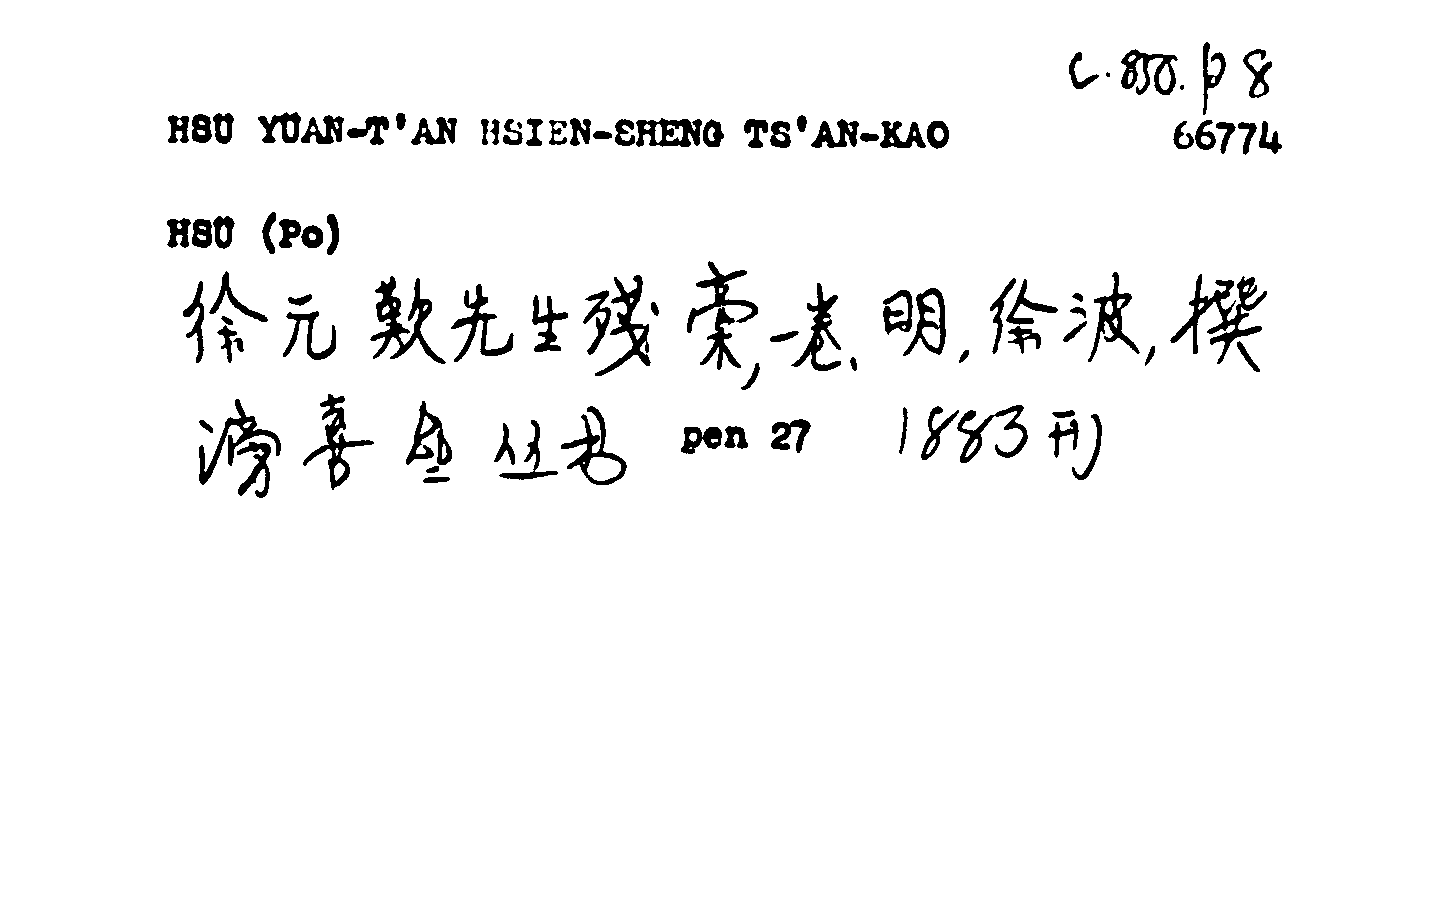 C. 850. p 8
HSÜ YÜAN-T'AN HSIEN-SHENG TS'AN-KAO 66774
HSÜ (Po)
徐元歎先生残稾,一卷、明,徐波,撰
滂喜盦丛书 pen 27 1883刊